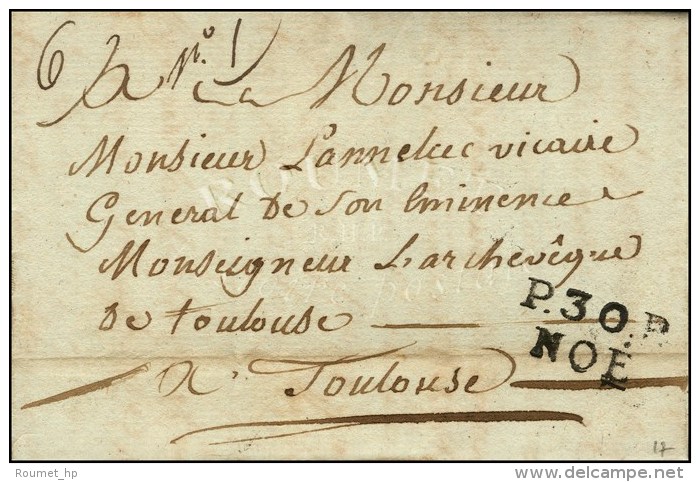 6 A N.º 1
Monsieur
Monsieur Lanneluc vicaire
General De Son Eminence
Monseigneur Larchevêque
de toulouse
P.30.P.
NOÉ
a Toulouse
17
Roumet_hp
www.delcampe.net